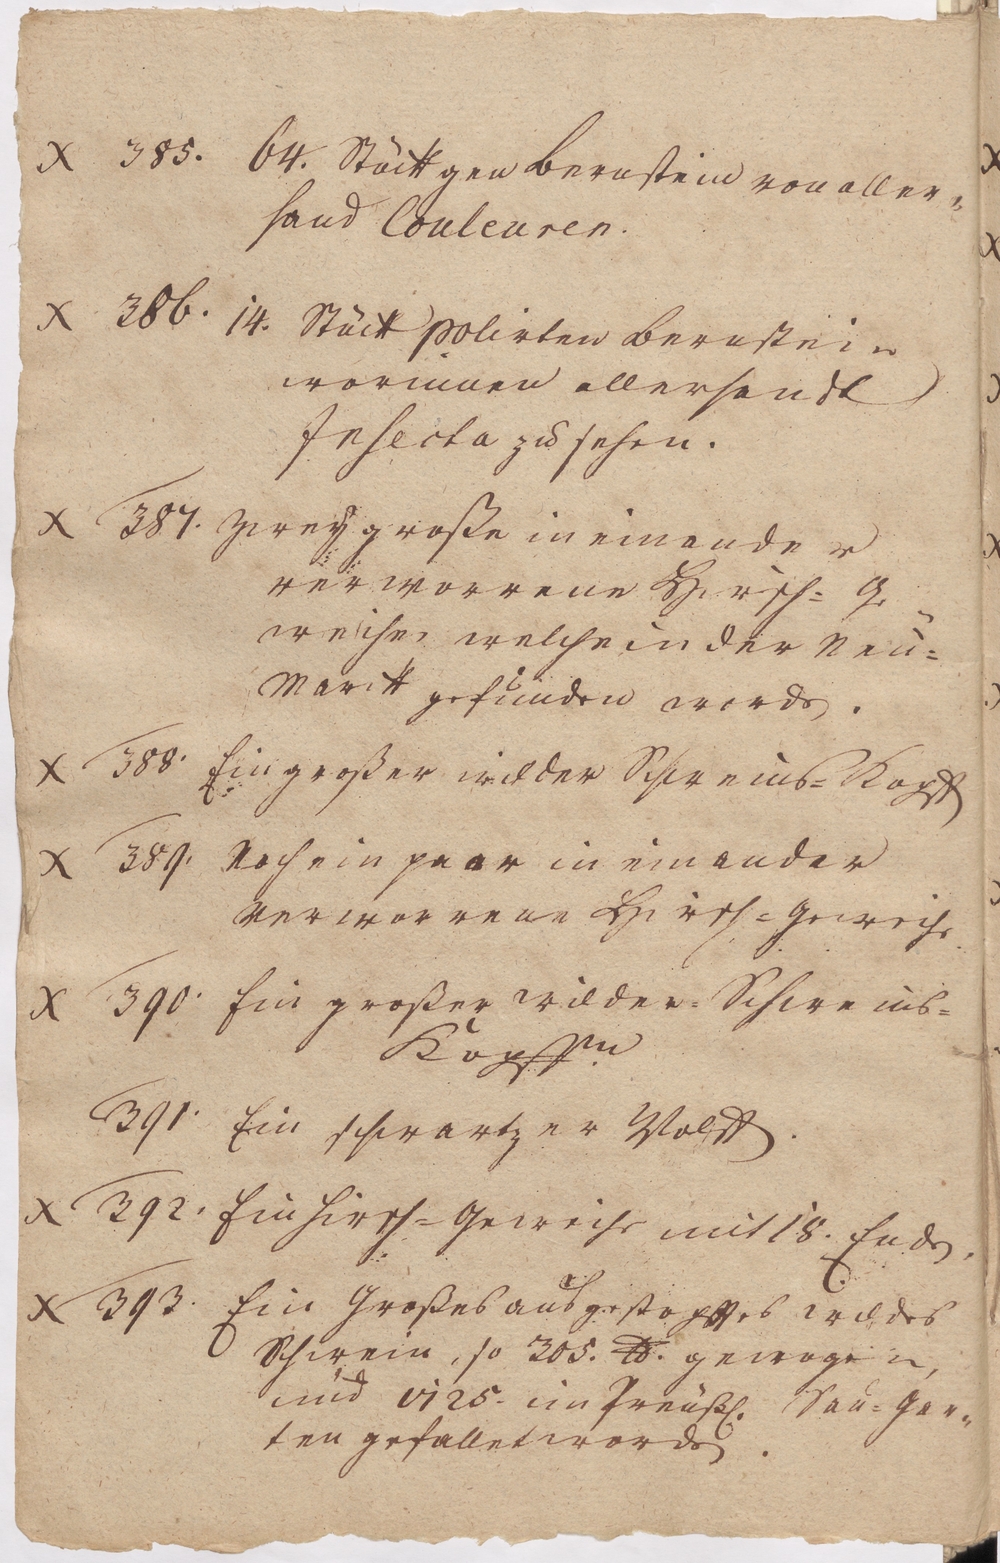 X 385. 64. Stückgen Bernstein von aller-
hand Couleuren.
X 386. 14. Stück polirten Bernstein
worinnen allerhandt
Insecta zu sehen.
X 387. Zwey große in einander
verworrene Hirsch= Ge
weihe welche in der Neu=
Marck gefunden worden.
X 388. Ein großer wilder Schweins=Kopff
X 389. Noch ein paar in einander
verworrene Hirsch=Geweihe
X 390. Ein großer wilder Schweins=
Kopff
391. Ein schwartzer Wolff.
X 392. Ein Hirsch=Geweihe mit 18. Enden.
X 393. Ein Großes ausgestopfftes wildes
Schwein, so 305. ℔. gewogen,
und 1725. im Preüßl. Sau=Gar-
ten gefället worden.